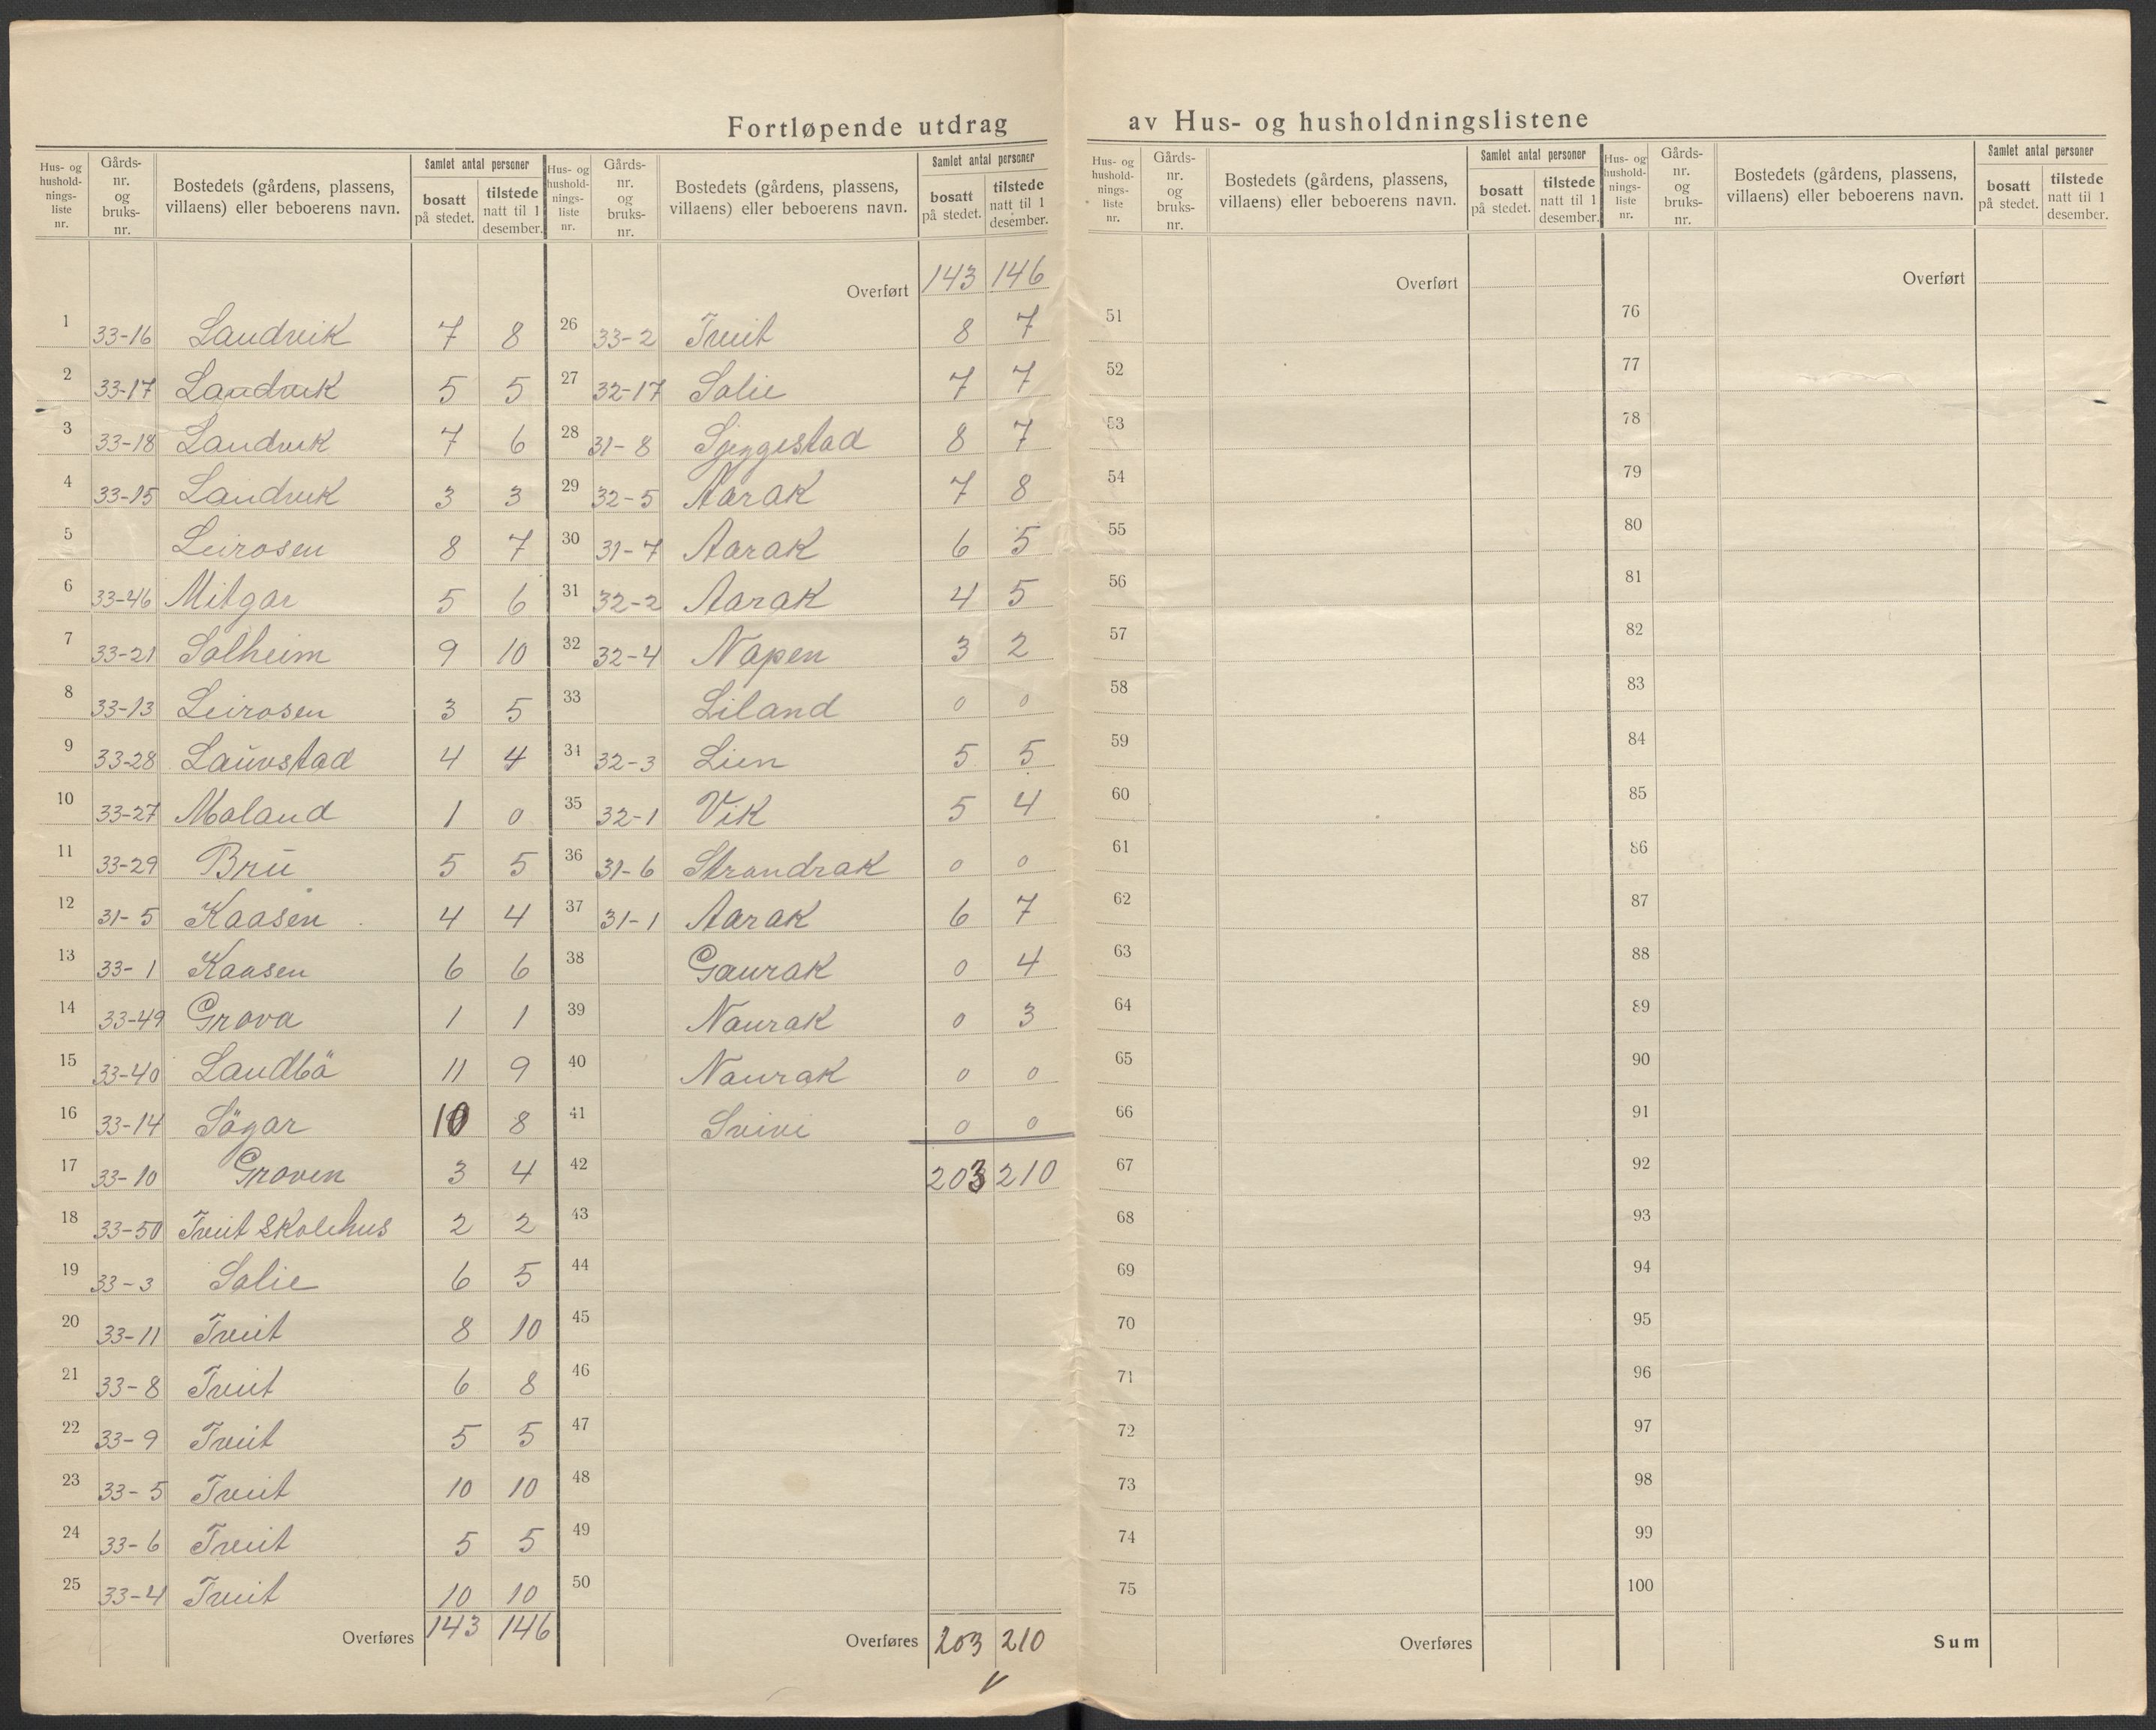 Fortløpende utdrag av Hus- og husholdningslistene
Hus- og hushold-nings-liste nr. Gårds-nr. og bruks-nr. Bostedets (gårdens, plassens, villaens) eller beboerens navn. Samlet antal personer bosatt på stedet. tilstede natt til 1 desember.
1 33-16 Landvik 7 8
2 33-17 Landvik 5 5
3 33-18 Landvik 7 6
4 33-15 Landvik 3 3
5 Leirosen 8 7
6 33-46 Mitgar 5 6
7 33-21 Solheim 9 10
8 33-13 Leirosen 3 5
9 33-28 Lauvstad 4 4
10 33-27 Moland 1 0
11 33-29 Bru 5 5
12 31-5 Kaasen 4 4
13 33-1 Kaasen 6 6
14 33-49 Grova 1 1
15 33-40 Landbö 11 9
16 33-14 Sögar 10 8
17 33-10 Groven 3 4
18 33-50 Tveit Skolehus 2 2
19 33-3 Solie 6 5
20 33-11 Tveit 8 10
21 33-8 Tveit 6 8
22 33-9 Tveit 5 5
23 33-5 Tveit 10 10
24 33-6 Tveit 5 5
25 33-4 Tveit 10 10
Overføres 143 146
Hus- og hushold-nings-liste nr. Gårds-nr. og bruks-nr. Bostedets (gårdens, plassens, villaens) eller beboerens navn. Samlet antal personer bosatt på stedet. tilstede natt til 1 desember.
Overført 143 146
26 33-2 Tveit 8 7
27 32-17 Solie 7 7
28 31-8 8 7
29 32-5 Aarak 7 8
30 31-7 Aarak 6 5
31 32-2 Aarak 4 5
32 32-4 Napen 3 2
33 Liland 0 0
34 32-3 Lien 5 5
35 32-1 Vik 5 4
36 31-6 Strandrak 0 0
37 31-1 Aarak 6 7
38 Gaurak 0 4
39 Naurak 0 3
40 Naurak 0 0
41 Svivi 0 0
42 203 210
43
44
45
46
47
48
49
50
Overføres 203 210
Hus- og hushold-nings-liste nr. Gårds-nr. og bruks-nr. Bostedets (gårdens, plassens, villaens) eller beboerens navn. Samlet antal personer bosatt på stedet. tilstede natt til 1 desember.
Overført
51
52
53
54
55
56
57
58
59
60
61
62
63
64
65
66
67
68
69
70
71
72
73
74
75
Overføres
Hus- og hushold-nings-liste nr. Gårds-nr. og bruks-nr. Bostedets (gårdens, plassens, villaens) eller beboerens navn. Samlet antal personer bosatt på stedet. tilstede natt til 1 desember.
Overført
76
77
78
79
80
81
82
83
84
85
86
87
88
89
90
91
92
93
94
95
96
97
98
99
100
Sum